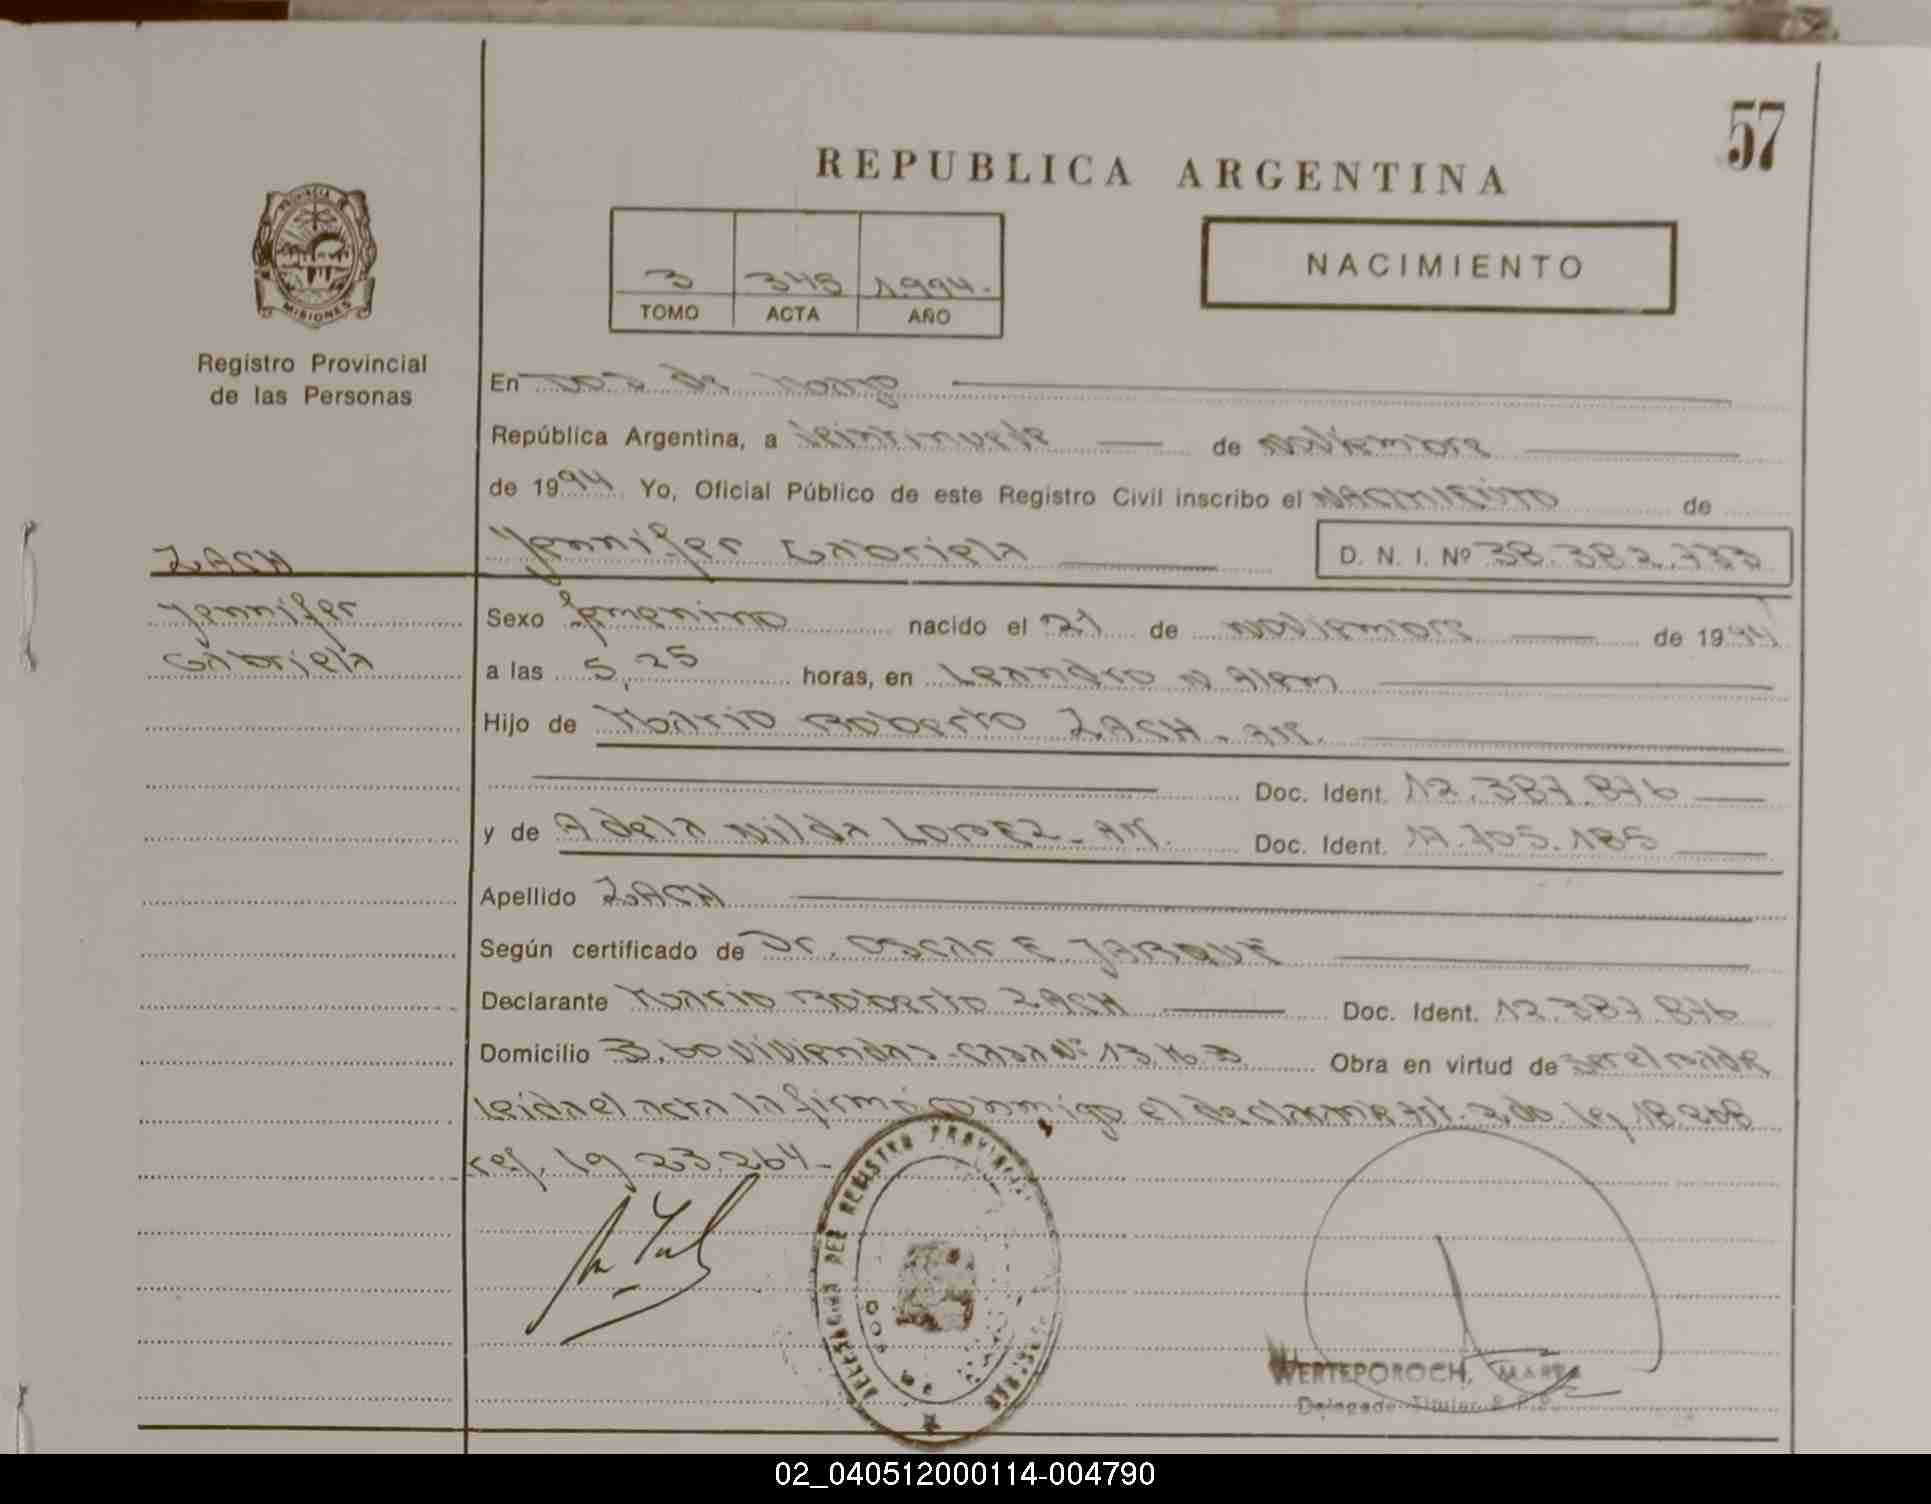 57
REPUBLICA ARGENTINA
PROVINCIA DE
MISIONES
3 345 1.994.
TOMO ACTA AÑO
NACIMIENTO
Registro Provincial
de las Personas
En Dos de Mayo
República Argentina, a Veintinueve de Noviembre
de 1994 Yo, Oficial Público de este Registro Civil inscribo el NACIMIENTO de
ZACH
Yennifer Gabriela D. N. I. Nº 38.382.733
Yennifer
Gabriela
Sexo femenino nacido el 21 de Noviembre de 1994
a las 5,25 horas, en Leandro N Alem
Hijo de Mario Roberto ZACH - Arg.
Doc. Ident. 12.387.876
y de Adela Nilda LOPEZ - Arg. Doc. Ident. 17.705.185
Apellido ZACH
Según certificado de Dr. Oscar E JARQUE
Declarante Mario Roberto ZACH Doc. Ident. 12.387.876
Domicilio B. 60 Viviendas - casa Nº 13 Obra en virtud de ser el padre
leida el acta la firmó conmigo el declarante Art. 2do. ley 18.248
ref. ley 23.264 -
DELEGACION DEL REGISTRO PROVINCIAL
WERTEPOROCH, MARTA
Delegada Titular R.P.P.
02_040512000114-004790